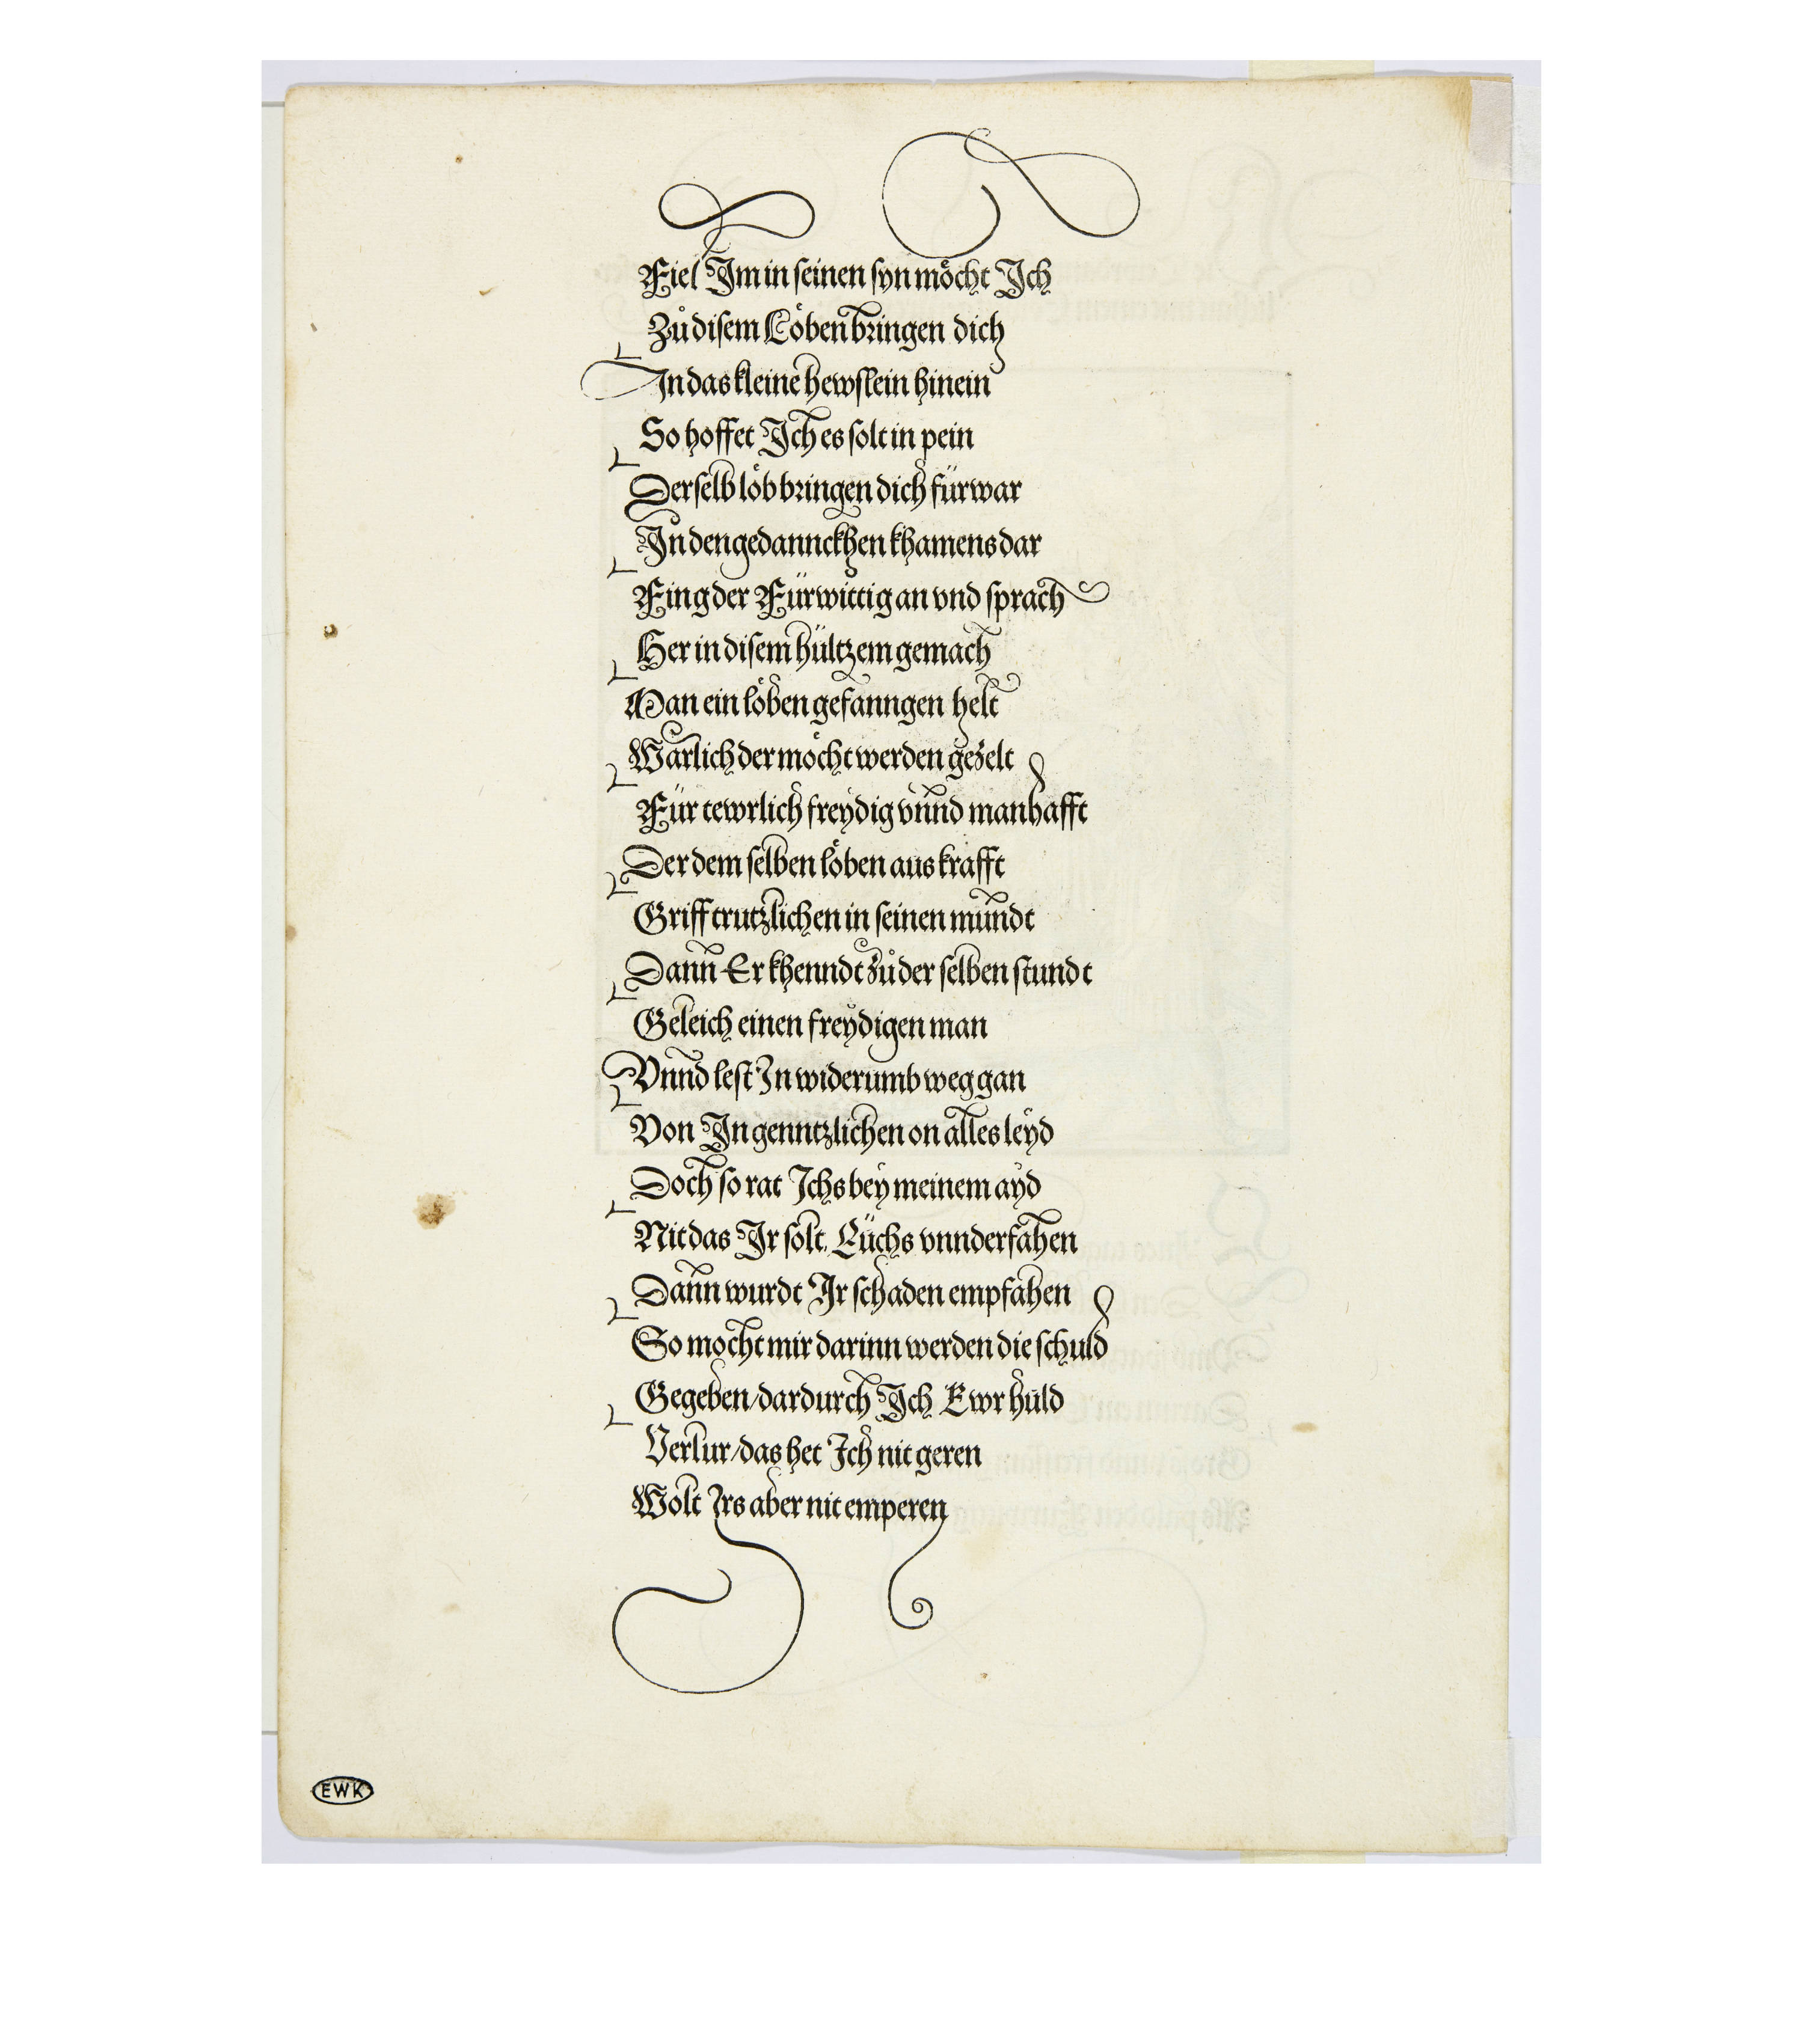 Fiel Im in seinen syn möcht Ich
Zů disem Löben bringen dich
In das kleine hewslein hinein
So hoffet Ich es solt in pein
Derselb löb bringen dich fürwar
In den gedannckhen khamens dar
Fing der Fürwittig an vnd sprach
Her in disem hültzem gemach
Man ein löben gefanngen helt
Warlich der möcht werden gezelt
Für tewrlich freydig vnnd manhafft
Der dem selben löben aus krafft
Griff trutzlichen in seinen mundt
Dann Er khenndt zů der selben stundt
Geleich einen freydigen man
Vnnd lest In widerumb weg gan
Von In genntzlichen on alles leyd
Doch so rat Ichs bey meinem ayd
Nit das Ir solt Eüchs vnnderfahen
Dann wurdt Ir schaden empfahen
So mocht mir darinn werden die schuld
Gegeben/dardurch Ich Ewr huld
Verlur/das het Ich nit geren
Wolt Irs aber nit emperen
EWK